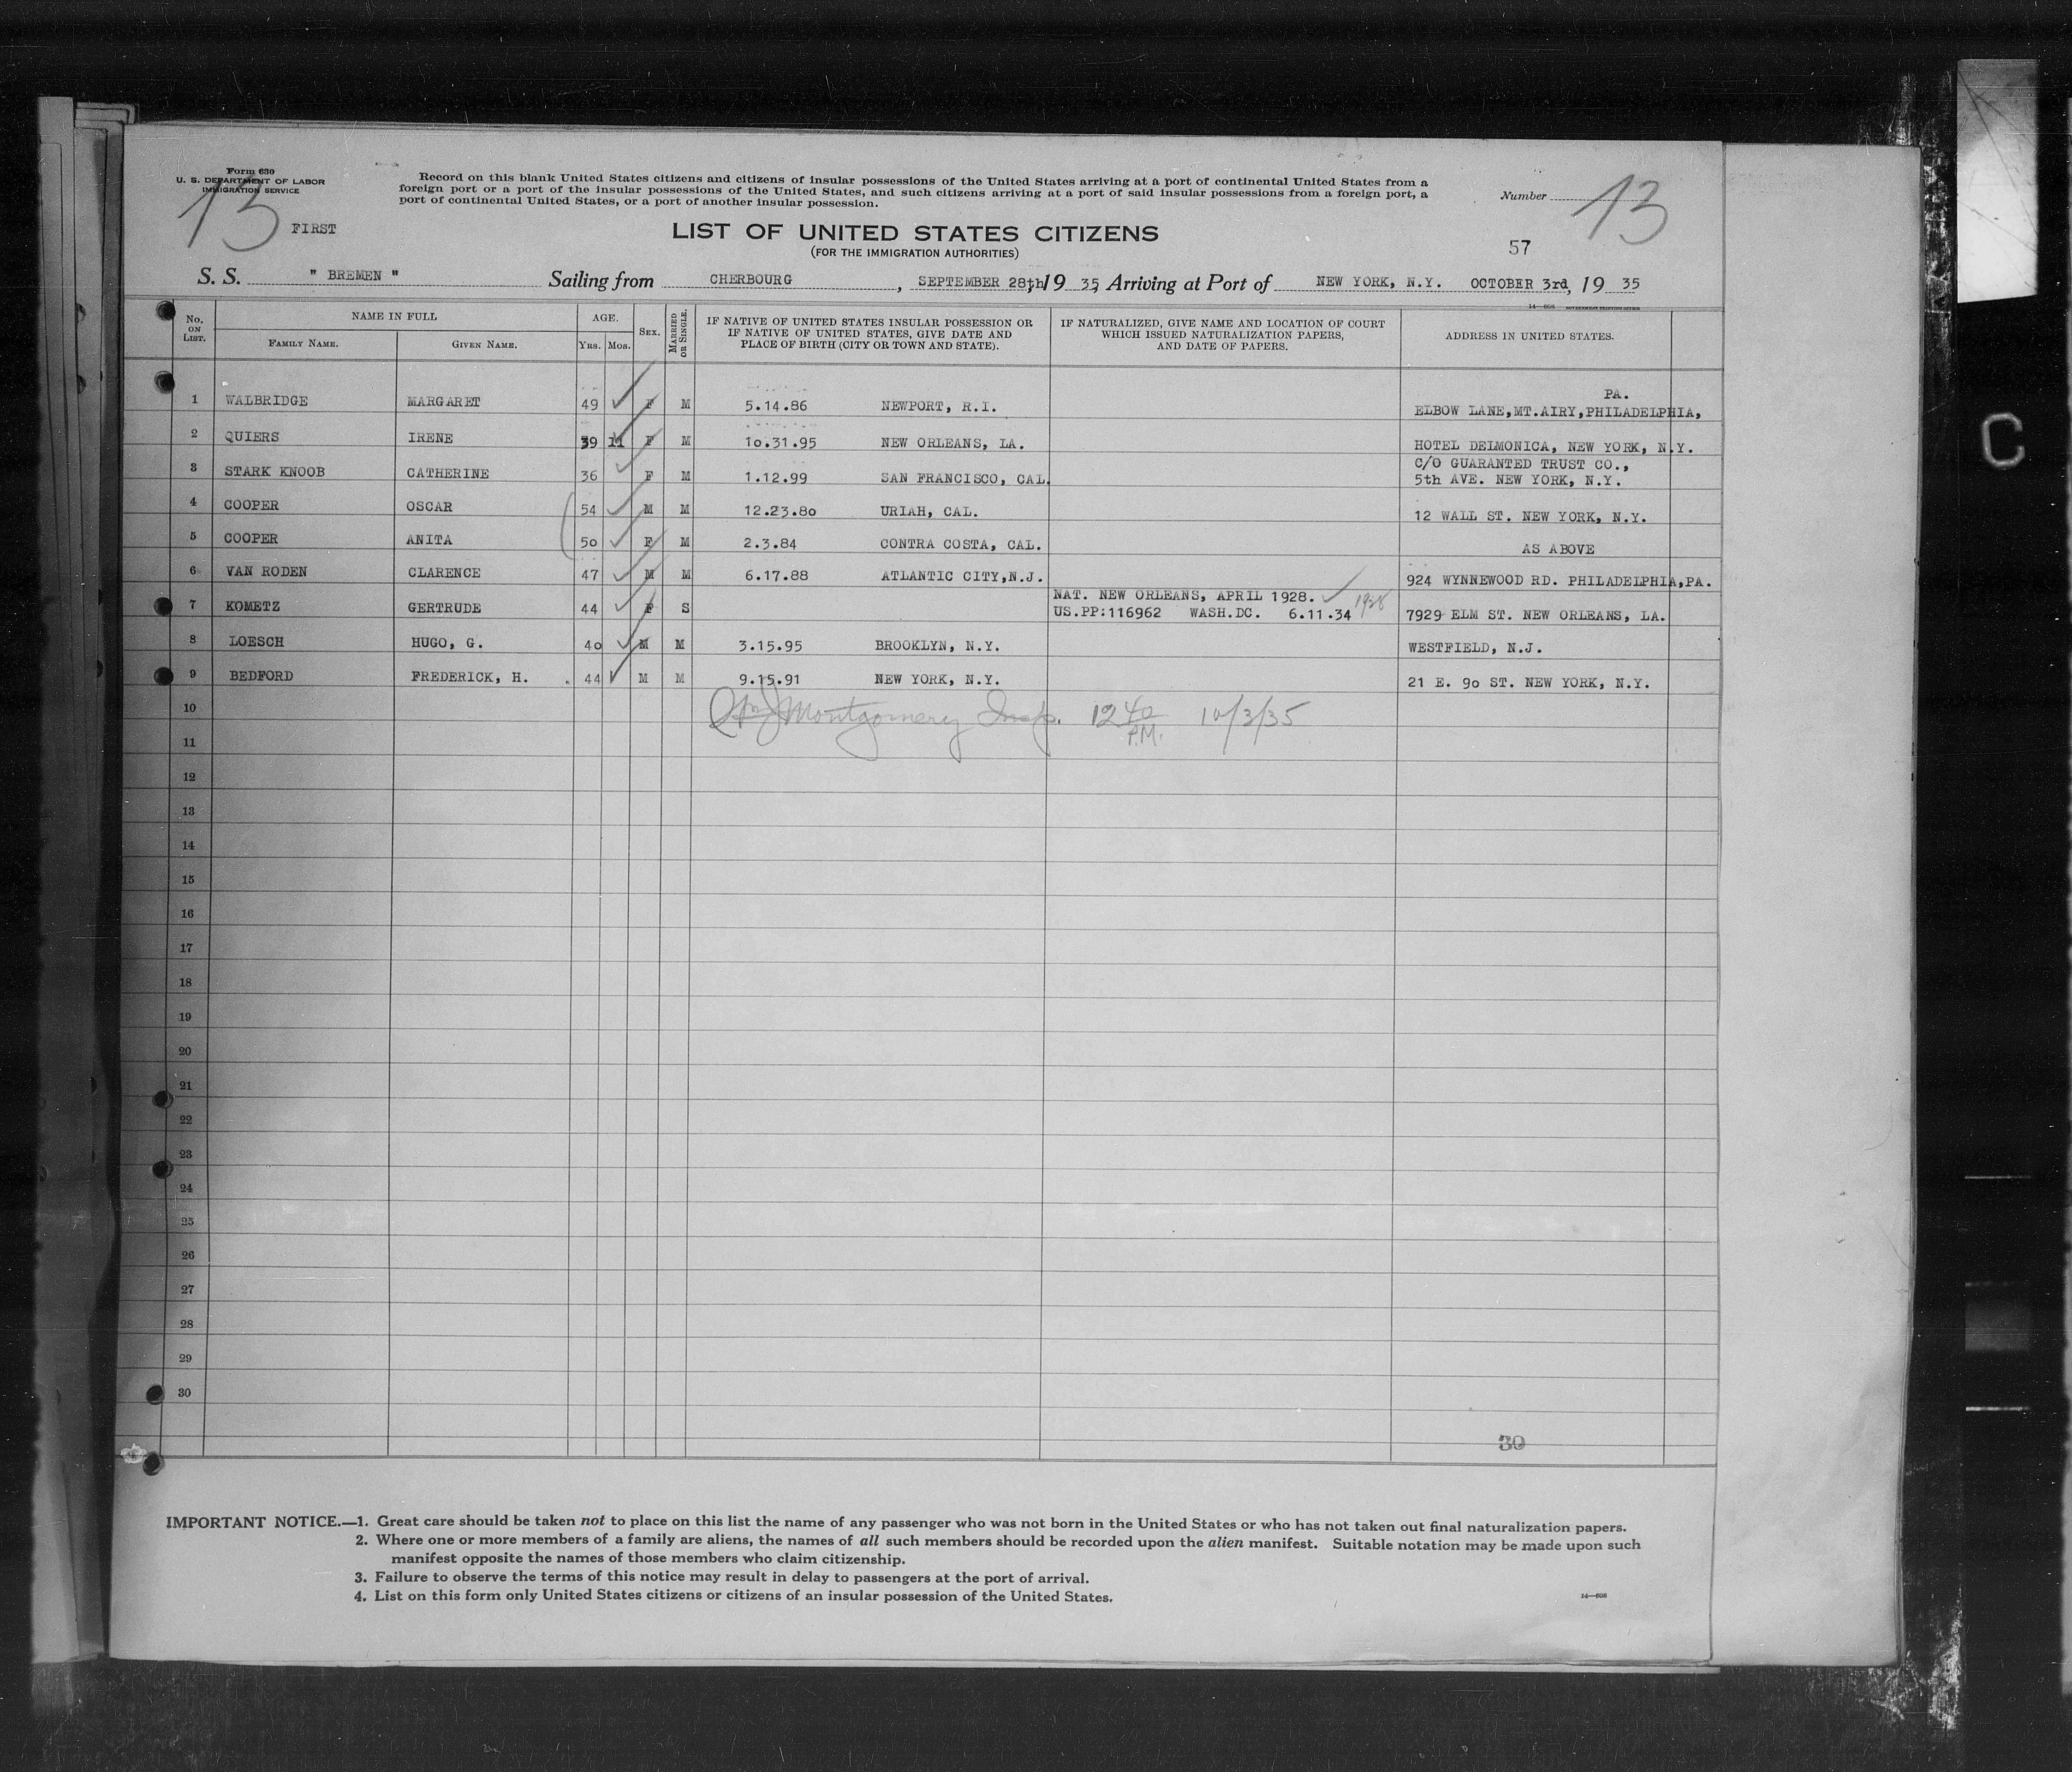 Form 630
U. S. DEPARTMENT OF LABOR
IMMIGRATION SERVICE
13
FIRST
Record on this blank United States citizens and citizens of insular possessions of the United States arriving at a port of continental United States from a
foreign port or a port of the insular possessions of the United States, and such citizens arriving at a port of said insular possessions from a foreign port, a
port of continental United States, or a port of another insular possession.
Number 13
LIST OF UNITED STATES CITIZENS
(FOR THE IMMIGRATION AUTHORITIES)
57
S. S. " BREMEN " Sailing from CHERBOURG, SEPTEMBER 28th, 19 35, Arriving at Port of NEW YORK, N.Y. OCTOBER 3rd, 19 35
14—608 GOVERNMENT PRINTING OFFICE
No. ON LIST. NAME IN FULL FAMILY NAME. GIVEN NAME. AGE. YRS. MOS. SEX. MARRIED OR SINGLE. IF NATIVE OF UNITED STATES INSULAR POSSESSION OR IF NATIVE OF UNITED STATES, GIVE DATE AND PLACE OF BIRTH (CITY OR TOWN AND STATE). IF NATURALIZED, GIVE NAME AND LOCATION OF COURT WHICH ISSUED NATURALIZATION PAPERS, AND DATE OF PAPERS. ADDRESS IN UNITED STATES.
PA.
1 WALBRIDGE MARGARET 49 F M 5.14.86 NEWPORT, R.I. ELBOW LANE,MT.AIRY,PHILADELPHIA,
2 QUIERS IRENE 39 11 F M 10.31.95 NEW ORLEANS, LA. HOTEL DELMONICA, NEW YORK, N.Y.
C/O GUARANTED TRUST CO.,
3 STARK KNOOB CATHERINE 36 F M 1.12.99 SAN FRANCISCO, CAL. 5th AVE. NEW YORK, N.Y.
4 COOPER OSCAR 54 M M 12.23.80 URIAH, CAL. 12 WALL ST. NEW YORK, N.Y.
5 COOPER ANITA 50 F M 2.3.84 CONTRA COSTA, CAL. AS ABOVE
6 VAN RODEN CLARENCE 47 M M 6.17.88 ATLANTIC CITY,N.J. 924 WYNNEWOOD RD. PHILADELPHIA,PA.
NAT. NEW ORLEANS, APRIL 1928. 1928
7 KOMETZ GERTRUDE 44 F S US.PP:116962 WASH.DC. 6.11.34 7929 ELM ST. NEW ORLEANS, LA.
8 LOESCH HUGO, G. 40 M M 3.15.95 BROOKLYN, N.Y. WESTFIELD, N.J.
9 BEDFORD FREDERICK, H. 44 M M 9.15.91 NEW YORK, N.Y. 21 E. 90 ST. NEW YORK, N.Y.
10 Montgomery Insp. 12 40 P.M. 10/3/35
11
12
13
14
15
16
17
18
19
20
21
22
23
24
25
26
27
28
29
30
30
IMPORTANT NOTICE.—1. Great care should be taken not to place on this list the name of any passenger who was not born in the United States or who has not taken out final naturalization papers.
2. Where one or more members of a family are aliens, the names of all such members should be recorded upon the alien manifest. Suitable notation may be made upon such
manifest opposite the names of those members who claim citizenship.
3. Failure to observe the terms of this notice may result in delay to passengers at the port of arrival.
4. List on this form only United States citizens or citizens of an insular possession of the United States.
14—608
C